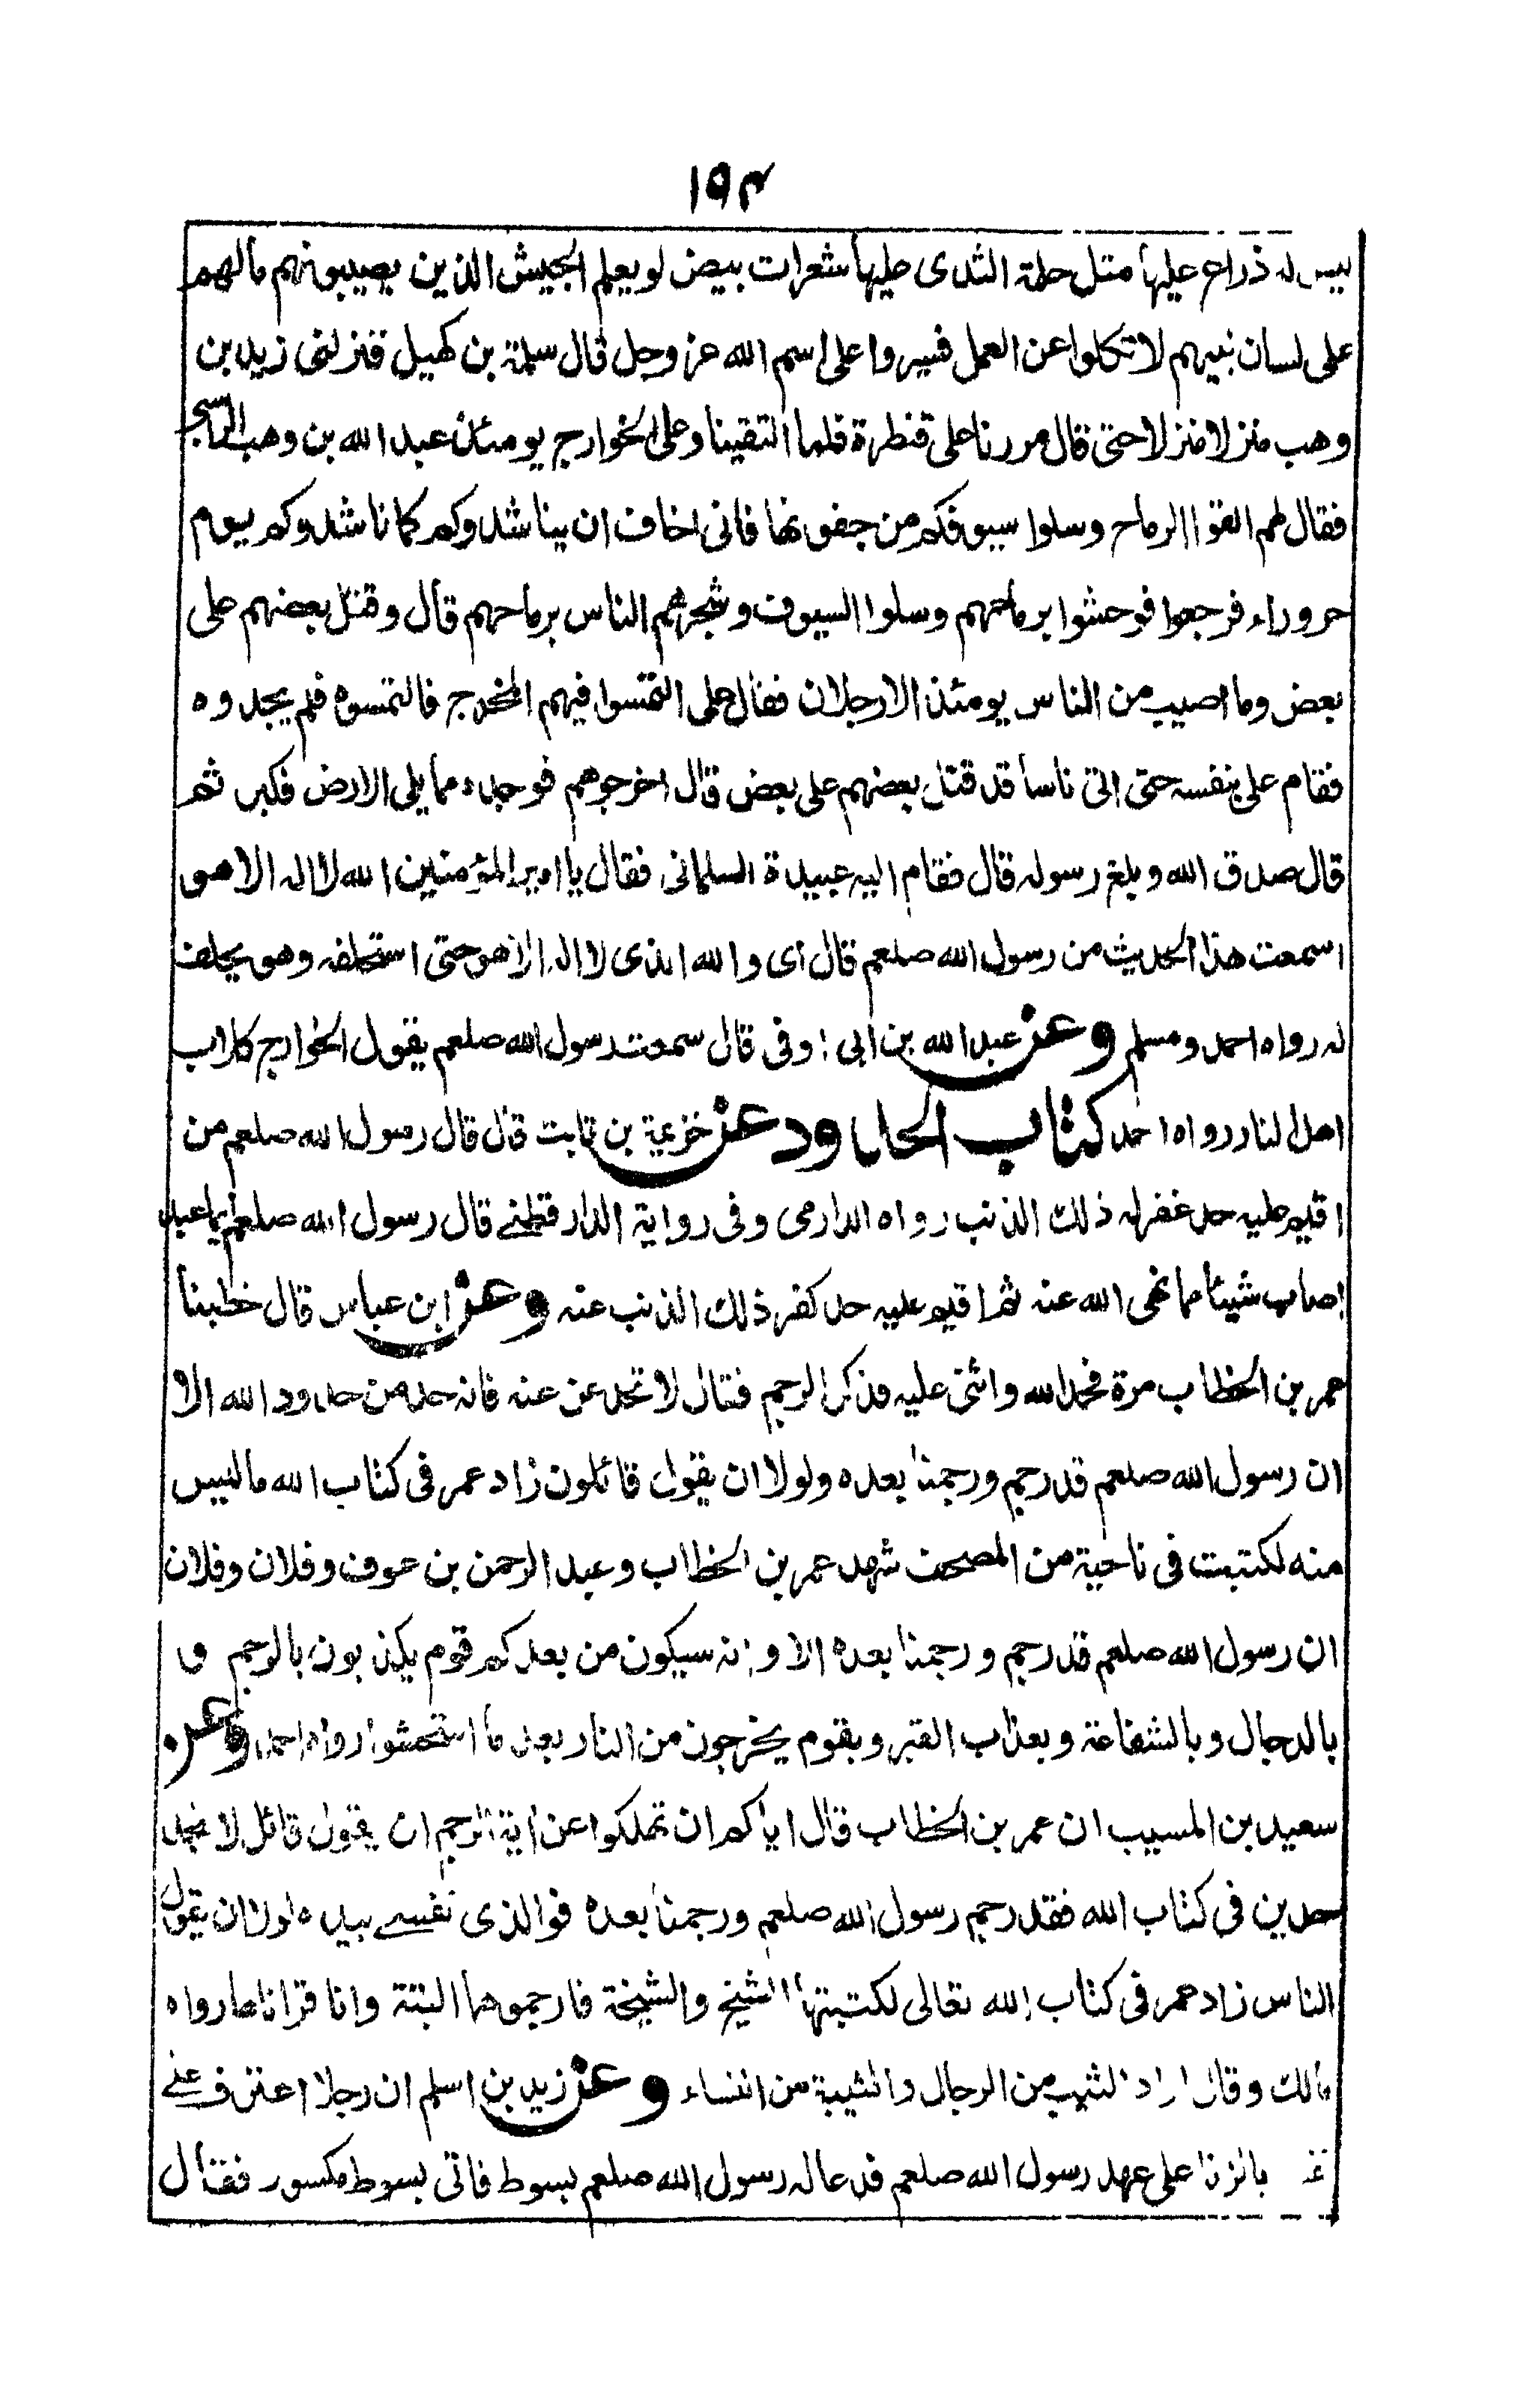 ١٥٣
ليس له ذراع عليها مثل حلمة الثدى عليها شعرات بيض لو يعلم الجيش الذين يصيبونهم مالهم
على لسان نبيهم لا تكلوا عن العمل فسيروا على اسم الله عز وجل قال سلمة بن كهيل فنزلنى زيد بن
وهب منزلا منزلا حتى قال مررنا على قنطرة فلما التقينا وعلى الخوارج يومئذ عبد الله بن وهب الراسبى
فقال لهم القوا الرماح وسلوا سيوفكم من جفونها فانى اخاف ان يناشدوكم كما ناشدوكم يوم
حروراء فرجعوا فوحشوا برماحهم وسلوا السيوف وشجرهم الناس برماحهم قال وقتل بعضهم على
بعض وما اصيب من الناس يومئذ الا رجلان فقال على التمسوا فيهم المخدج فالتمسوه فلم يجدوه
فقام على بنفسه حتى اتى ناسا قد قتل بعضهم على بعض قال اخرجوهم فوجدوه مما يلى الارض فكبر ثم
قال صدق الله وبلغ رسوله قال فقام اليه عبيدة السلمانى فقال يا امير المؤمنين الله لا اله الا هو
اسمعت هذا الحديث من رسول الله صلعم قال اى والله الذى لا اله الا هو حتى استحلفه وهو يحلف
له رواه احمد ومسلم وعن عبد الله بن ابى اوفى قال سمعت رسول الله صلعم يقول الخوارج كلاب
اهل النار رواه احمد كتاب الحدود عن خزيمة بن ثابت قال قال رسول الله صلعم من
اقيم عليه حد غفر له ذلك الذنب رواه الدارمى وفى رواية الدارقطنے قال رسول الله صلعم ايما عبد
اصاب شيئا مما نهى الله عنه ثم اقيم عليه حد كفر ذلك الذنب عنه وعن ابن عباس قال خطبنا
عمر بن الخطاب مرة فحمد الله واثنى عليه فذكر الرجم فقال لا تخدعن عنه فانه حد من حدود الله الا
ان رسول الله صلعم قد رجم ورجمنا بعده ولولا ان يقول قائلون زاد عمر فى كتاب الله ما ليس
منه لكتبت فى ناحية من المصحف شهد عمر بن الخطاب وعبد الرحمن بن عوف وفلان وفلان
ان رسول الله صلعم قد رجم ورجمنا بعده الا وانه سيكون من بعدكم قوم يكذبون بالرجم و
بالدجال وبالشفاعة وبعذاب القبر وبقوم يخرجون من النار بعد ما امتحشوا رواه احمد وعن
سعيد بن المسيب ان عمر بن الخطاب قال اياكم ان تهلكوا عن اية الرجم ان يقول قائل لا نجد
حدين فى كتاب الله فقد رجم رسول الله صلعم ورجمنا بعده فوالذى نفسے بيده لولا ان يقول
الناس زاد عمر فى كتاب الله تعالى لكتبتها الشيخ والشيخة فارجموهما البتة وانا قرأناها رواه
مالك وقال اراد الثيب من الرجال والثيبة من النساء وعن زيد بن اسلم ان رجلا اعترف علے
بالزنا على عهد رسول الله صلعم فدعا له رسول الله صلعم بسوط فاتى بسوط مكسور فقال